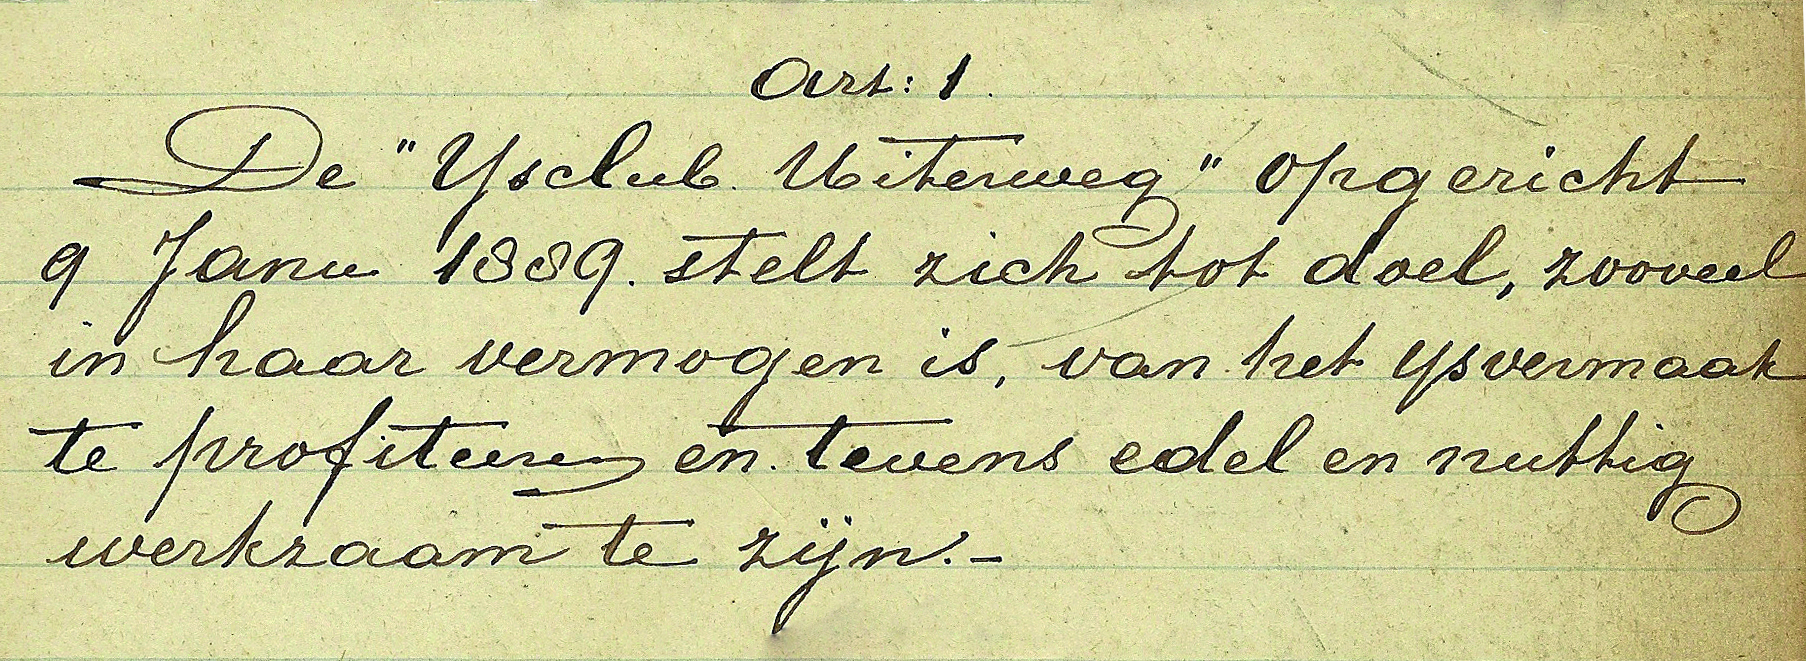 Art: 1.
De "Ysclub Uiterweg" opgericht
9 Janu 1889. stelt zich tot doel, zooveel
in haar vermogen is, van het ysvermaak
te profiteeren en tevens edel en nuttig
werkzaam te zijn.-